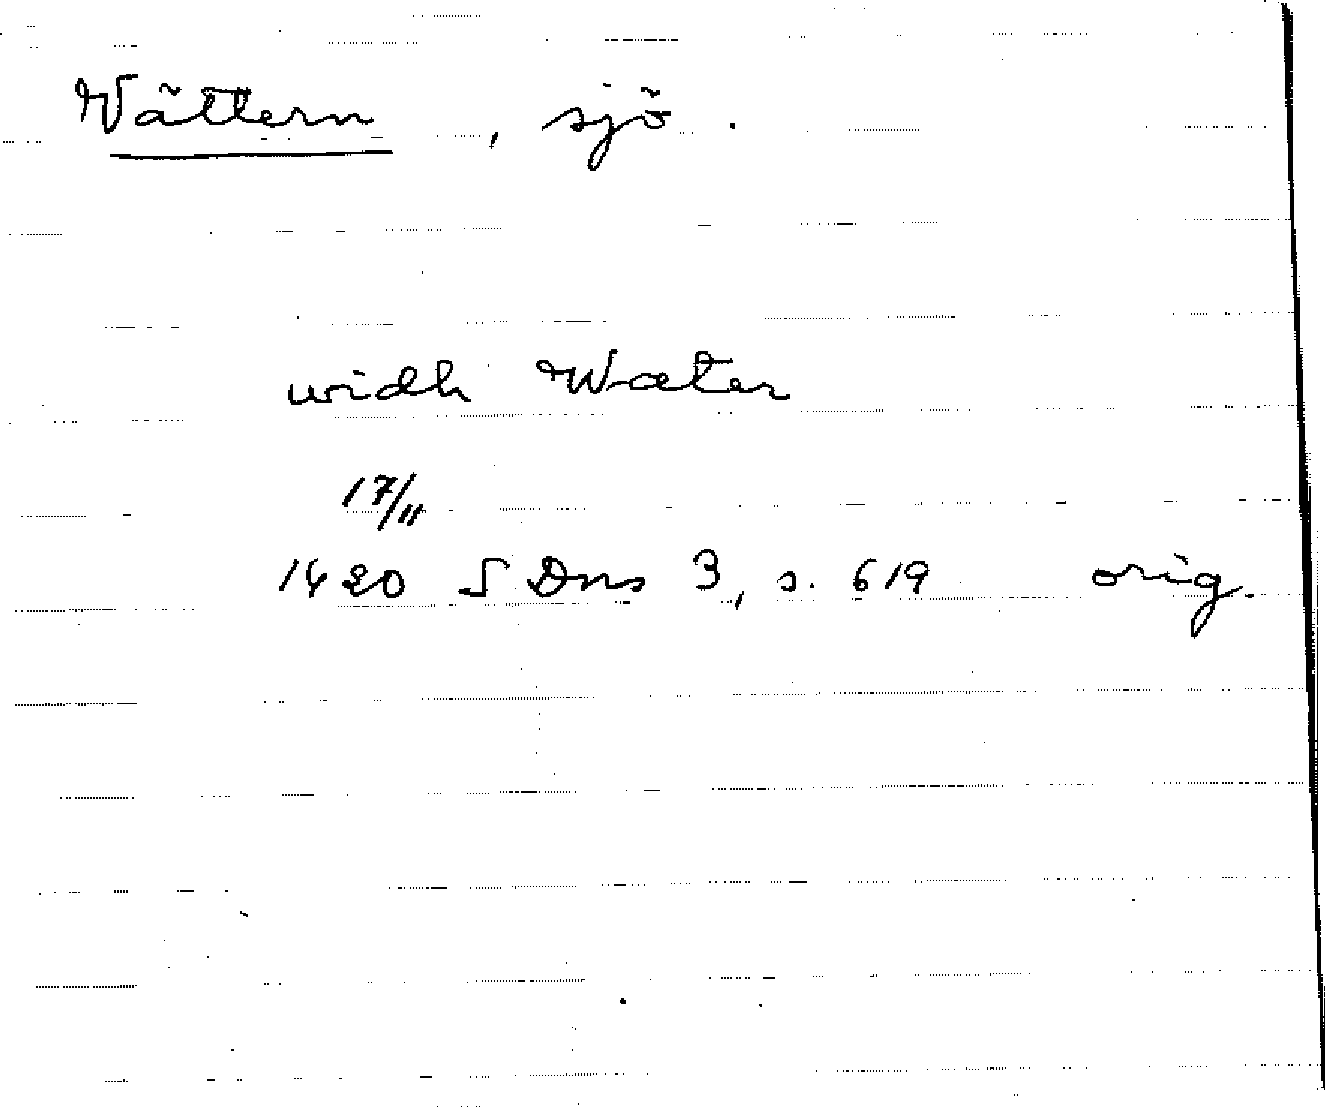 Vättern, sjö.
widh Wæter
17/11
1420 SDns 3, s. 619 orig.